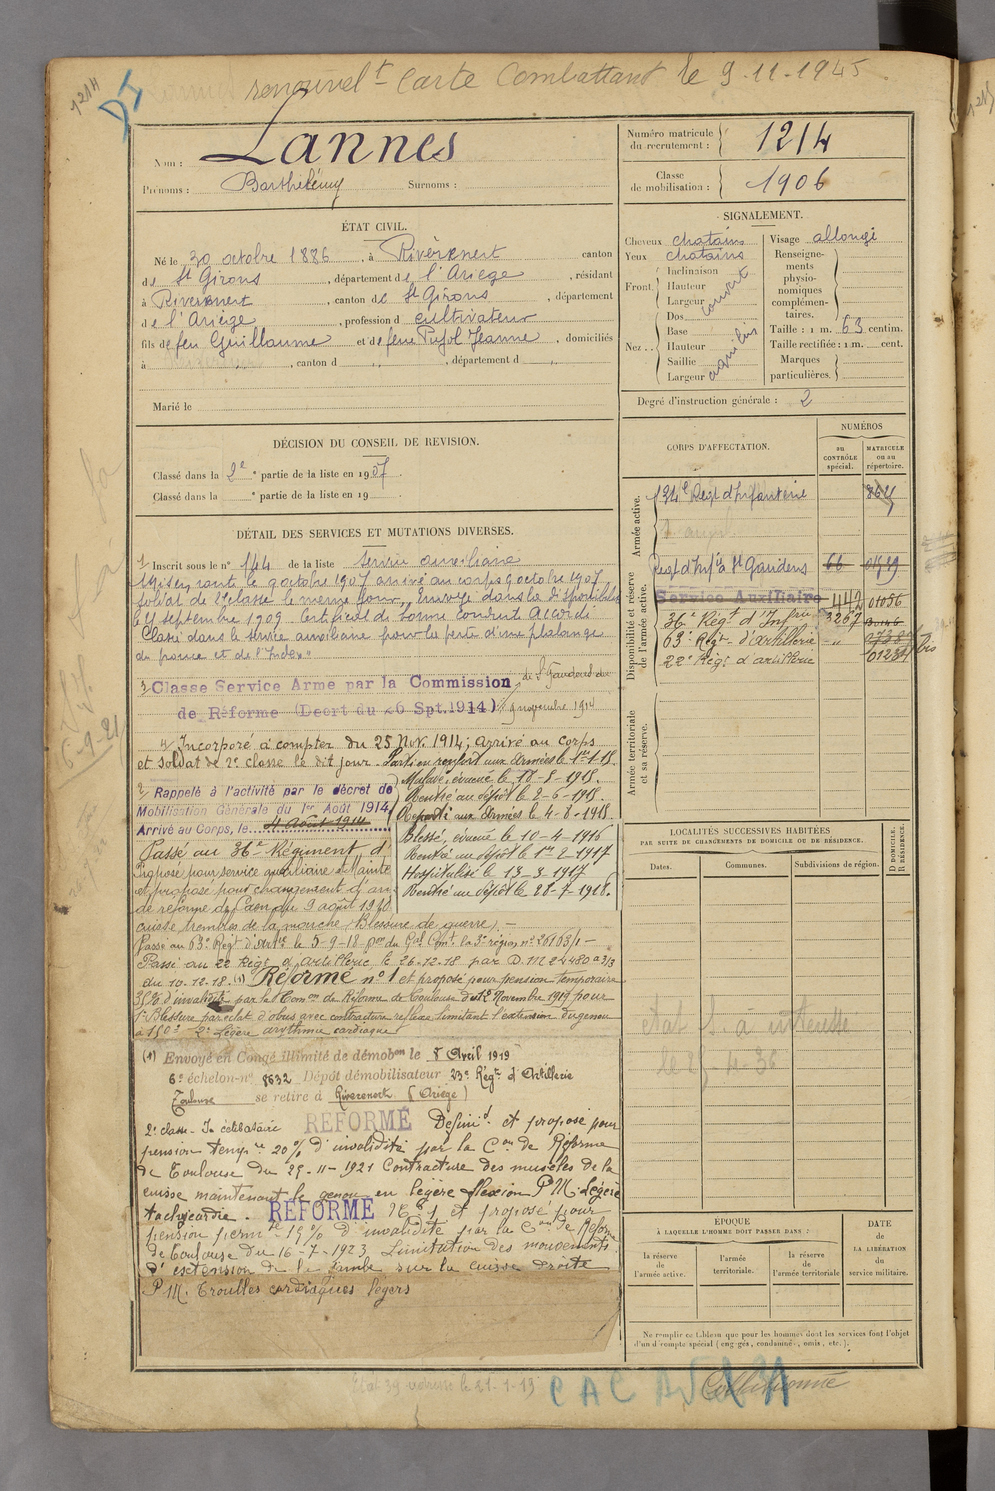 renouvel t Carte Combattant le 9-11-1945
1214
Nom : Lannes
Prénoms : Barthélémy Surnoms :
Numéro matricule
du recrutement : 1214
Classe
de mobilisation : 1906
ÉTAT CIVIL.
Né le 30 octobre 1886, à Rivèrenert canton
de St Girons, département de l'Ariège, résidant
à Riverenert, canton de St Girons, département
de l'Ariège, profession d cultivateur
fils de feu Guillaume et de feue Pujol Jeanne, domiciliés
à , canton d , département d
Marié le
SIGNALEMENT.
Cheveux chatains
Yeux chatains
Front. Inclinaison
Hauteur
Largeur
couvert
Nez. . Dos
Base
Hauteur
Saillie
Largeur
aquilin
Visage allongé
Renseigne-
ments
physio-
nomiques
complémen-
taires.
Taille : 1 m. 63 centim.
Taille rectifiée : 1 m. cent.
Marques
particulières.
Degré d'instruction générale : 2
DÉCISION DU CONSEIL DE REVISION.
Classé dans la 2e partie de la liste en 1907.
Classé dans la e partie de la liste en 19
CORPS D'AFFECTATION.
NUMÉROS
au
CONTRÔLE
spécial.
MATRICULE
ou au
répertoire.
Armée active.
134e Régt d'Infanterie
Disponibilité et réserve
de l'armée active.
Regt d'Infie St Gaudens 66
Service Auxiliaire 442 01056
36e Régt d'Infrie 3267
63e Régt d'artillerie
22e Régt d'artillerie bis
Armée territoriale
et sa réserve.
DÉTAIL DES SERVICES ET MUTATIONS DIVERSES.
1/ Inscrit sous le n° 144 de la liste service auxiliaire
Mis en route le 9 octobre 1907 arrivé au corps 9 octobre 1907
soldat de 2e classe le même jour, Envoyé dans la disponibilité
le 4 septembre 1909. Certificat de bonne Conduite Accordé
Classé dans le service auxiliaire pour la perte d'une phalange
du pouce et de l'index
3/ Classe Service Arme par la Commission de St Gaudens du
de Réforme (Decrt du 26 Spt. 1914) 9 novembre 1914
4/ Incorporé à compter du 25 Nov. 1914; arrivé au corps
et soldat de 2e classe le dit jour - Parti en renfort aux armées le 1er-1-15.
2/ Rappelé à l'activité par le décret de
Mobilisation Générale du 1er Août 1914
Arrivé au Corps, le 4 Août 1914
Malade, évacué le 18-8-1915.
Rentré au dépôt le 2-6-1915.
Reparti aux Armées le 4-8-1915.
Blessé, évacué le 10-4-1916
Rentré au dépôt le 1er-2-1917
Hospitalisé le 13-3-1917
Rentré au dépôt le 28-7-1918.
Passé au 36e Régiment d
Proposé pour service auxiliaire Mainte
et proposé pour changement d'ar
de réforme de Caen du 9 août 19
cuisse troubles de la marche (Blessure de guerre) -
Passé au 63e Régt d'artie le 5-9-18 par du Gal Comt la 3e région n° 26163/1 -
Passé au 22 Régt d'artillerie le 26.12.18 par D.M 22480 2/3
du 10-12-18. (1) Réformé n° 1 et proposé pour pension temporaire
35% d'invalidité par la Comon de Réforme de Toulouse du 12 Novembre 1919 pour
1° Blessure par éclat d'obus avec contracture reflexe limitant l'extension du genou
à 150° 2° Légère arythmie cardiaque
(1) Envoyé en Congé illimité de démobon le 8 Avril 1919
6e échelon-n° 8632 Dépôt démobilisateur 23e Régt d'Artillerie
Toulouse se retire à Riverenert (Ariège)
REFORMÉ Définit et proposé pour
pension tempre 20% d'invalidité par la Con de Réforme
de Toulouse du 29-11-1921 Contracture des muscles de la
cuisse maintenant le genou en légère flexion P.M. Légère
tachycardie. REFORMÉ N° 1 et proposé pour
pension permte 15% d'invalidité par la Con de Réforme
de Toulouse du 16-7-1923 Limitation des mouvements
d'extension de la jambe sur la cuisse droite
P.M. Troubles cardiaques légers
LOCALITÉS SUCCESSIVES HABITÉES
PAR SUITE DE CHANGEMENTS DE DOMICILE OU DE RÉSIDENCE.
Dates. Communes. Subdivisions de région.
D. DOMICILE.
R. RÉSIDENCE.
ÉPOQUE
À LAQUELLE L'HOMME DOIT PASSER DANS :
la réserve
de
l'armée active.
l'armée
territoriale.
la réserve
de
l'armée territoriale
DATE
de
LA LIBÉRATION
du
service militaire.
Ne remplir ce tableau que pour les hommes dont les services font l'objet
d'un décompte spécial (engagés, condamnés, omis, etc.).